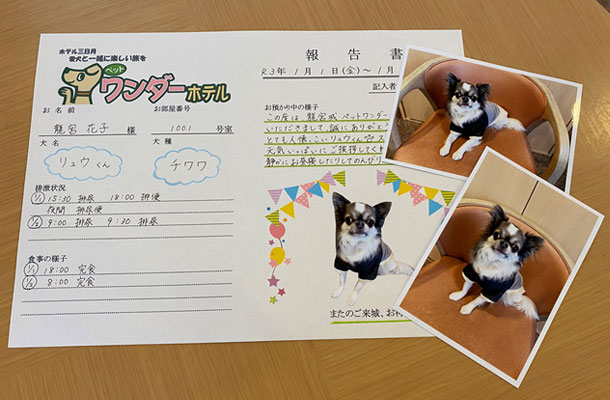 ホテル三日月
愛犬と一緒に楽しい旅を
ペット
ワンダーホテル
お名前
お部屋番号
龍宮 花子 様
1001 号室
犬名
犬種
リュウくん
チワワ
排泄状況
1/1 15:30 排尿 18:00 排便
夜間 排尿便
1/2 9:00 排尿 9:30 排尿
食事の様子
1/1 18:00 完食
1/2 8:00 完食
報告書
R3年 1月 1日(金)~1月
記入者
お預かり中の様子
この度は、龍宮城 ペットワンダー
いただきまして、誠にありがと
とても人懐こいリュウくん
元気いっぱいにご挨拶してく
静かにお昼寝したりしてのんび
またのご来城、お待